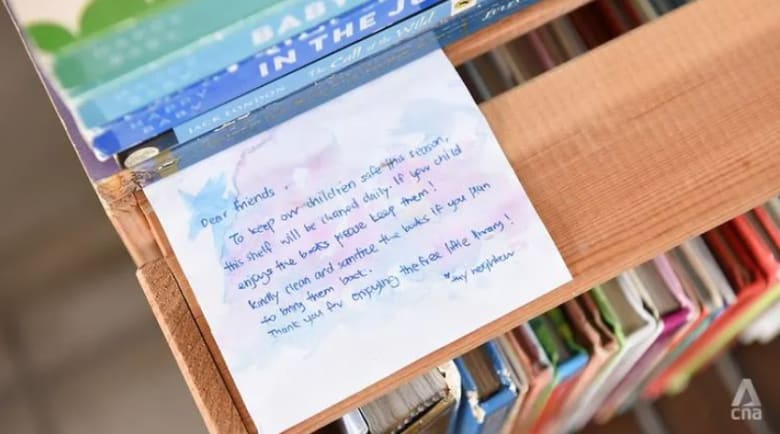 BABY
IN THE JU
JACK LONDON The Call of the Wild
Dear Friends,
To keep our children safe this season,
this shelf will be cleaned daily. If your child
enjoys the books please keep them!
Kindly clean and sanitise the books if you plan
to bring them back.
Thank you for enjoying the free little library!
cna